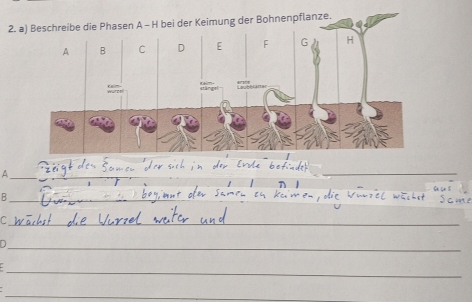 2. a) Beschreibe die Phasen A – H bei der Keimung der Bohnenpflanze.
A B C D E F G H
Keim-
wurzel
Keim-
stängel
erste
Laubblätter
A zeigt den Samen der sich in der Erde befindet
B beginnt der Samen zu keimen, die Wurzel wächst aus
C wächst die Wurzel weiter und
D
E